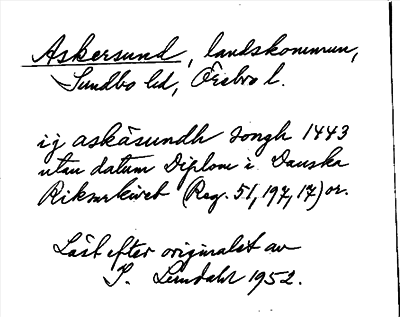 Askersund, landskommun,
Sundbo hd, Örebro l.
ij askäsundh songh 1443
utan datum Diplom i Danska
Riksarkivet (Reg. 51, 197, 17) or.
Läst efter originalet av
S. Lundahl 1952.